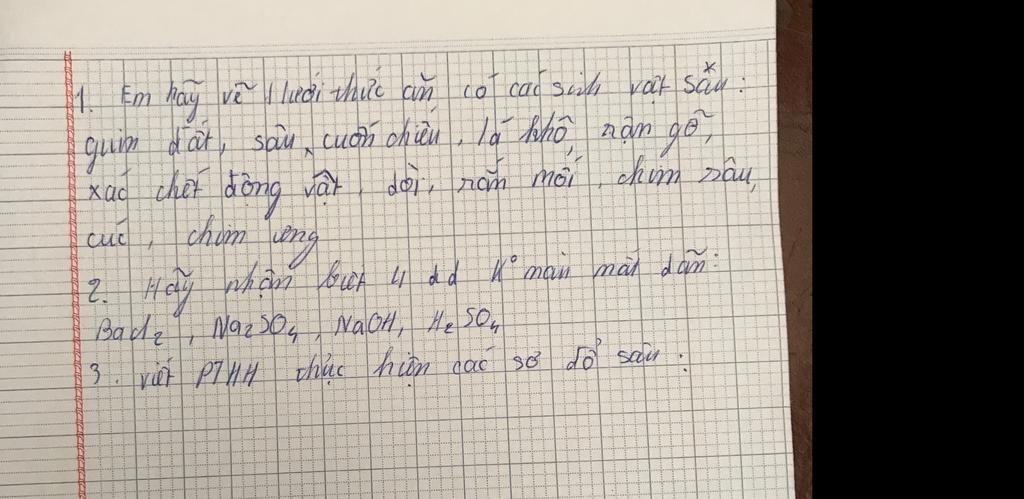 1. Em hãy vẽ 1 lưới thức ăn có các sinh vật sẵn:
guin đất, sâu, cuốn chiếu, lá khô, nặn gỗ,
xác chết động vật, dòi, rắn mối, chim sâu,
cuc, chim ưng
2. Hãy nhận biết 4 dd k° màu mất dãn:
BaCl2, Na2SO4, NaOH, H2SO4
3. viết PTHH thực hiện các sơ đồ sau: